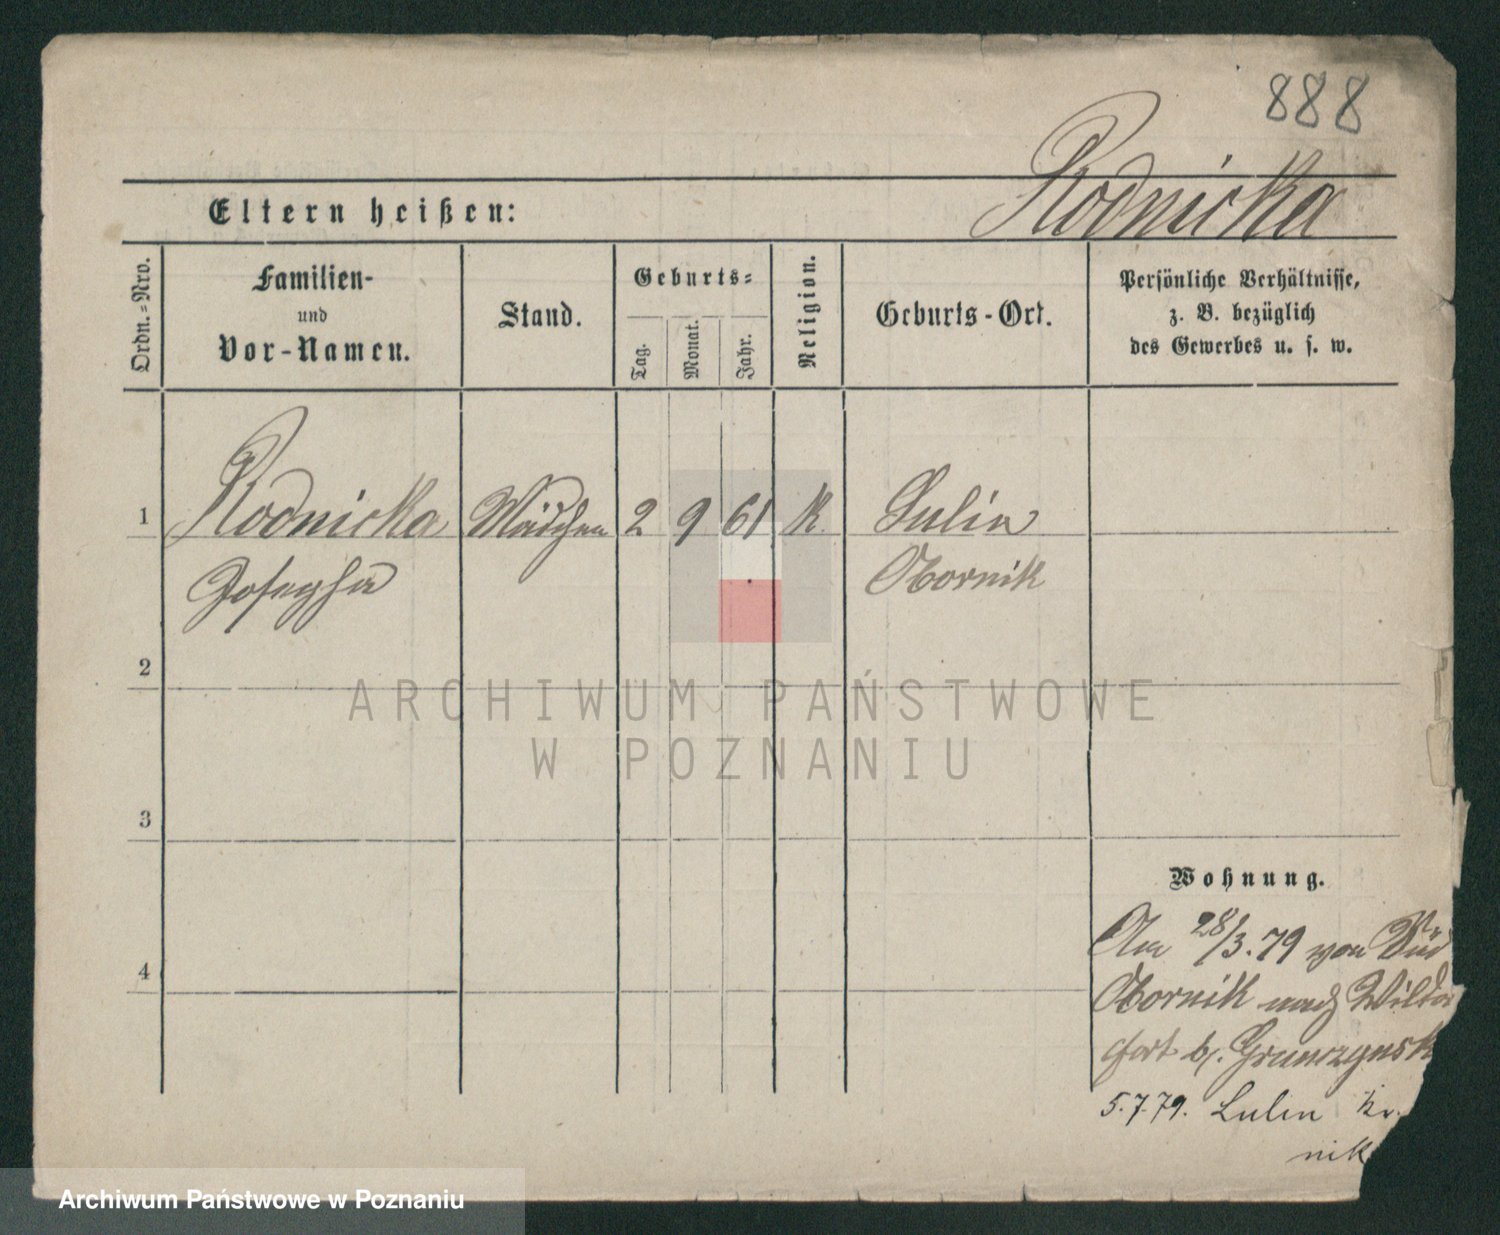 888
Rodnicka
Eltern heißen:
Ordn.-Nro.
Familien-
und
Vor-Namen.
Stand.
Geburts-
Tag.
Monat.
Jahr.
Religion.
Geburts-Ort.
Persönliche Verhältnisse,
z. B. bezüglich
des Gewerbes u. s. w.
1
Rodnicka Mädchen 2 9 61 k. Lulin
Josepha Obornik
2
ARCHIWUM PAŃSTWOWE
W POZNANIU
3
Wohnung.
Am 28/3.79 von
4
Obornik nach
fort b/.
5.7.79. Lulin Kr.
nik
Archiwum Państwowe w Poznaniu